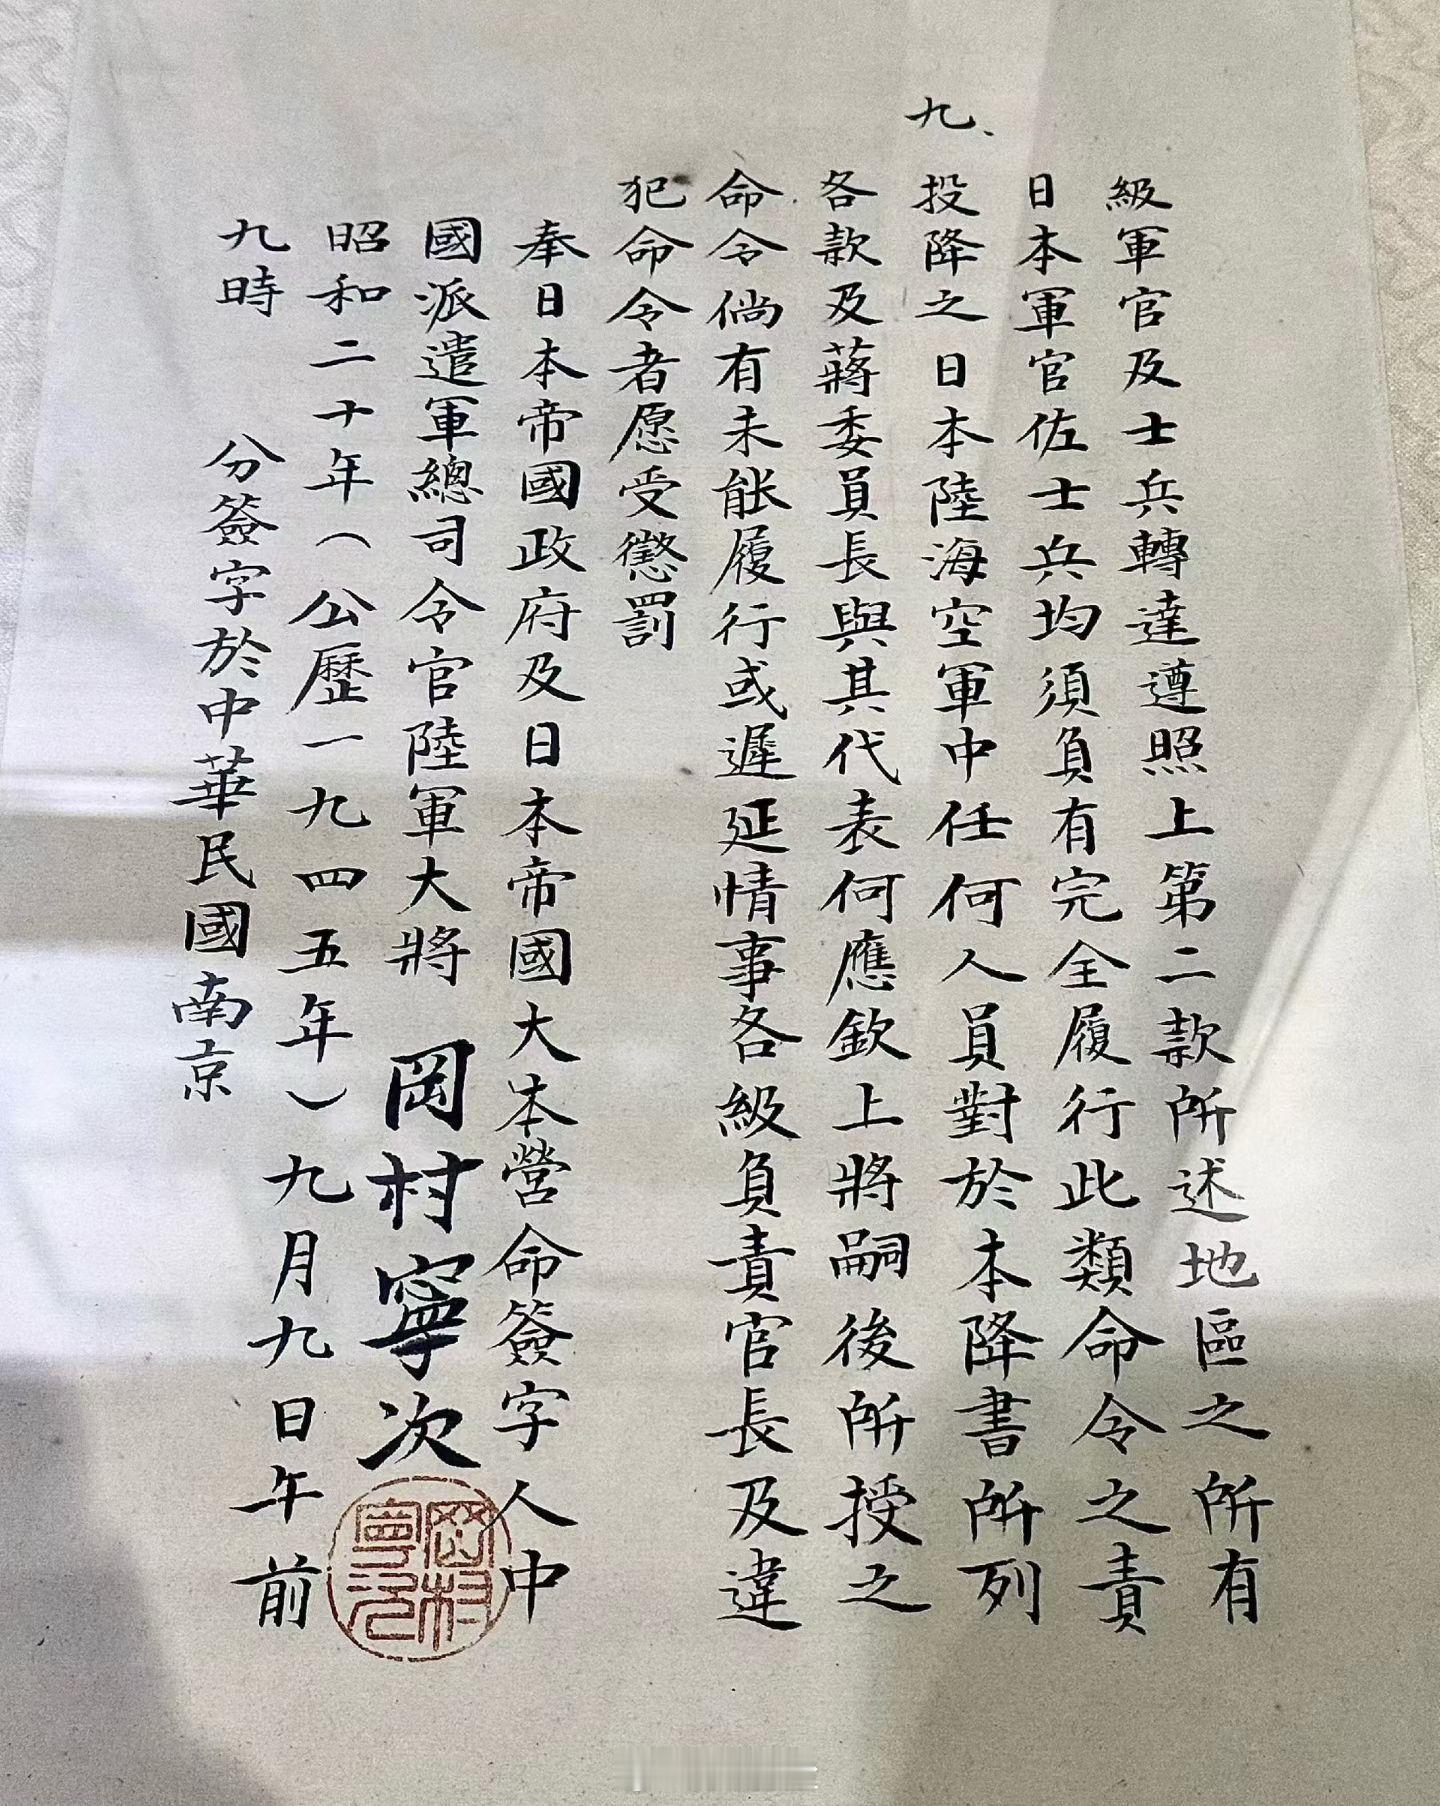 級軍官及士兵轉達遵照上第二款所述地區之所有
日本軍官佐士兵均須負有完全履行此類命令之責
九、投降之日本陸海空軍中任何人員對於本降書所列
各款及蔣委員長與其代表何應欽上將嗣後所授之
命令倘有未能履行或遲延情事各級負責官長及違
犯命令者愿受懲罰
奉日本帝國政府及日本帝國大本營命簽字人中
國派遣軍總司令官陸軍大將 岡村寧次
岡村寧次
昭和二十年（公歷一九四五年）九月九日午前
九時 分簽字於中華民國南京